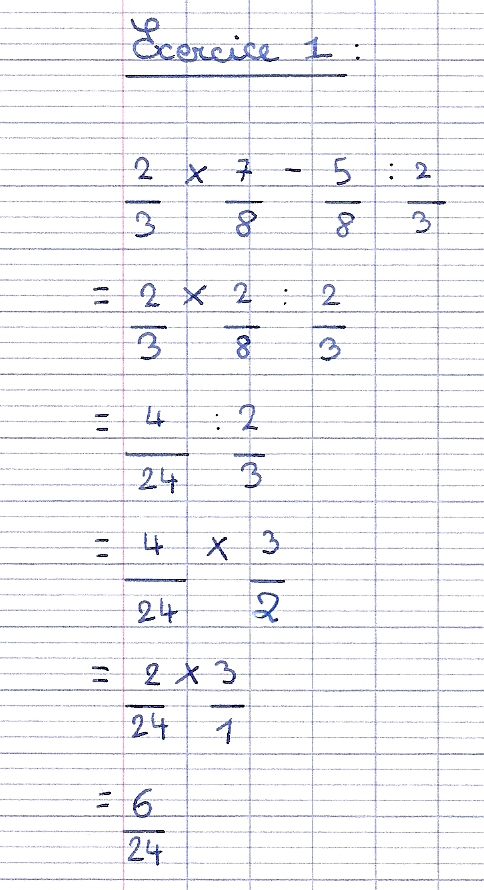 Exercice 1 :
2/3 × 7/8 - 5/8 : 2/3
= 2/3 × 2/8 : 2/3
= 4/24 : 2/3
= 4/24 × 3/2
= 2/24 × 3/1
= 6/24